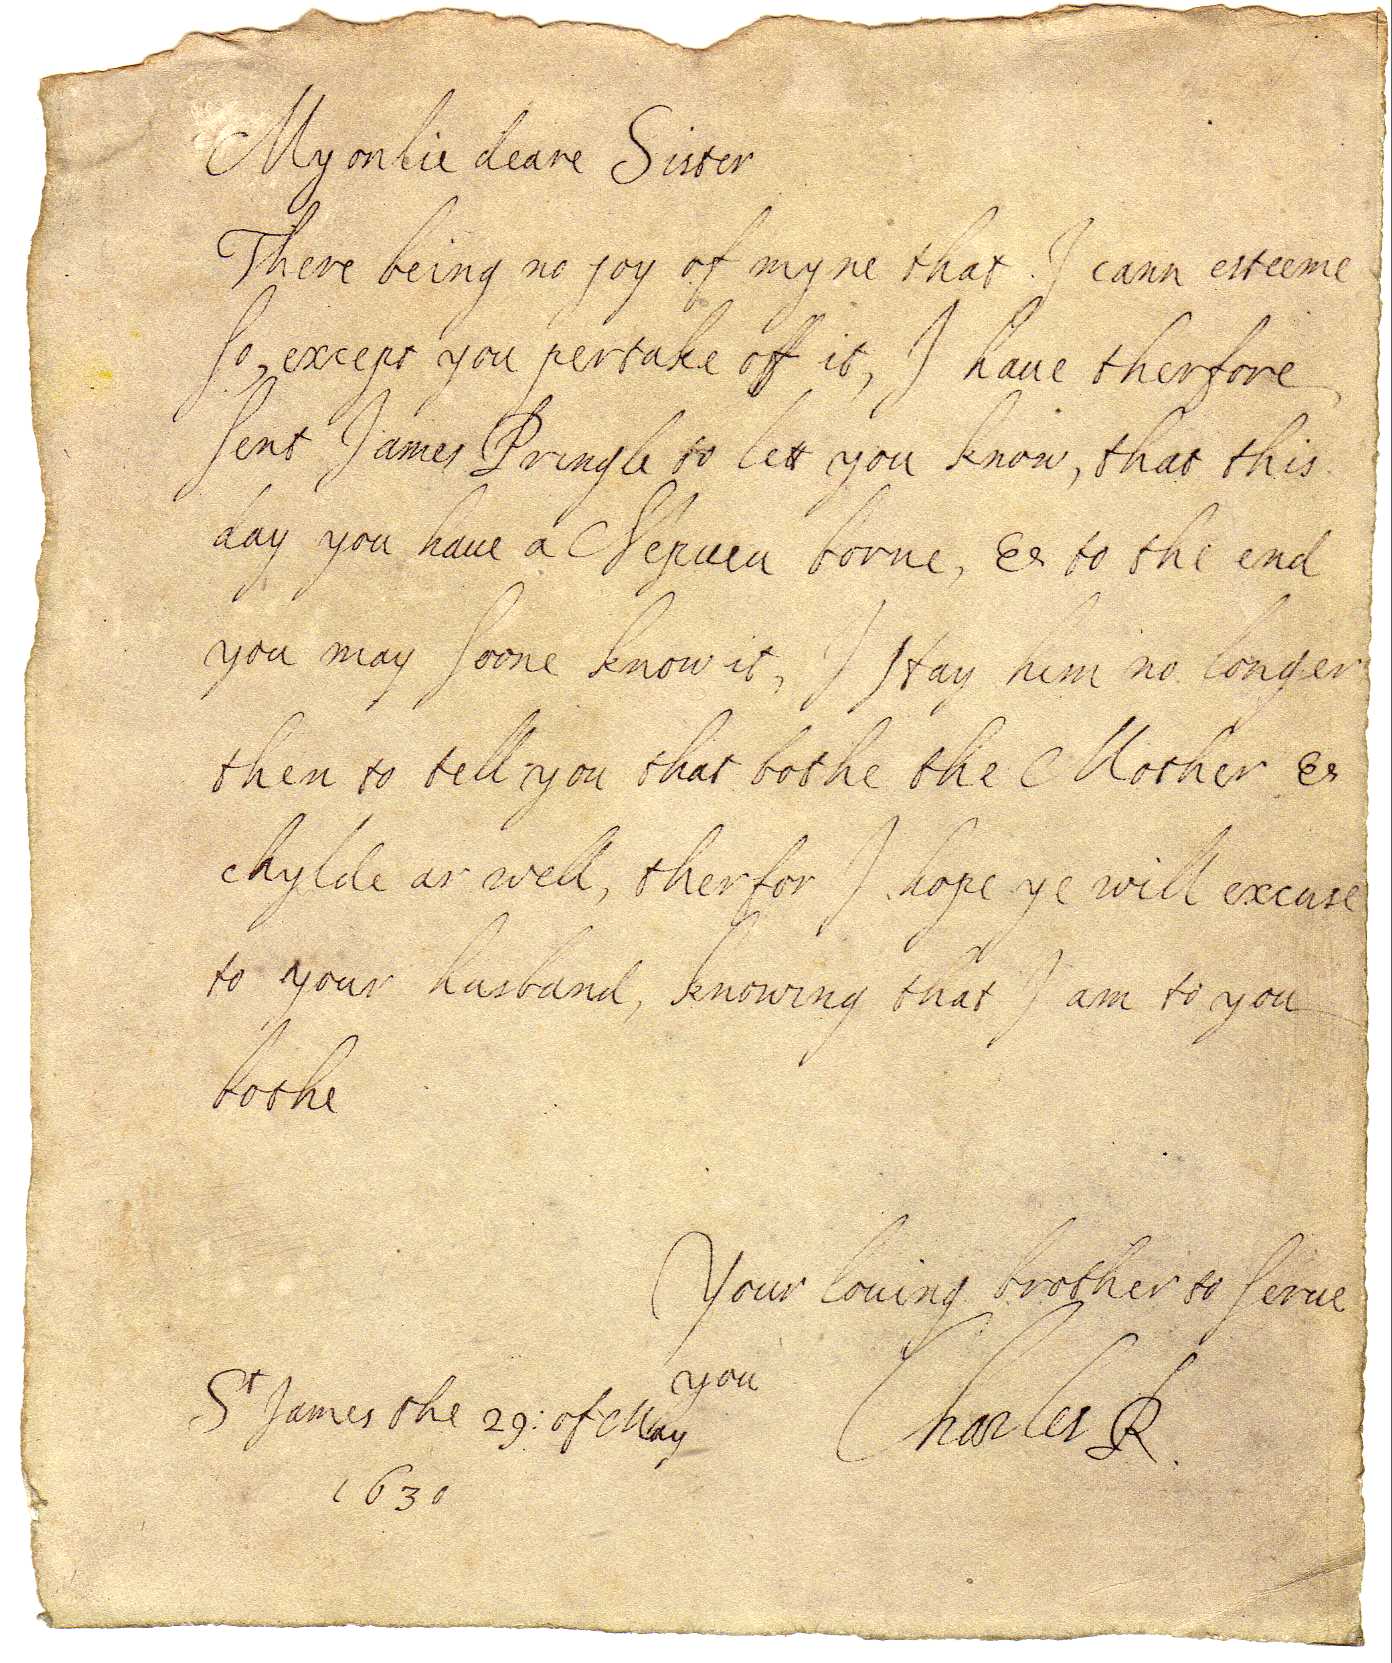 My onlie deare Sister
There being no joy of myne that I cann esteeme
so, except you pertake off it, I haue therfore
sent James Pringle to lett you know, that this
day you haue a Nepueu borne, & to the end
you may soone know it, I stay him no longer
then to tell you that bothe the Mother &
chylde ar well, therfor I hope ye will excuse
to your husband, knowing that I am to you
bothe
Your louing brother to serue
you
Charles R.
St James the 29: of May
1630